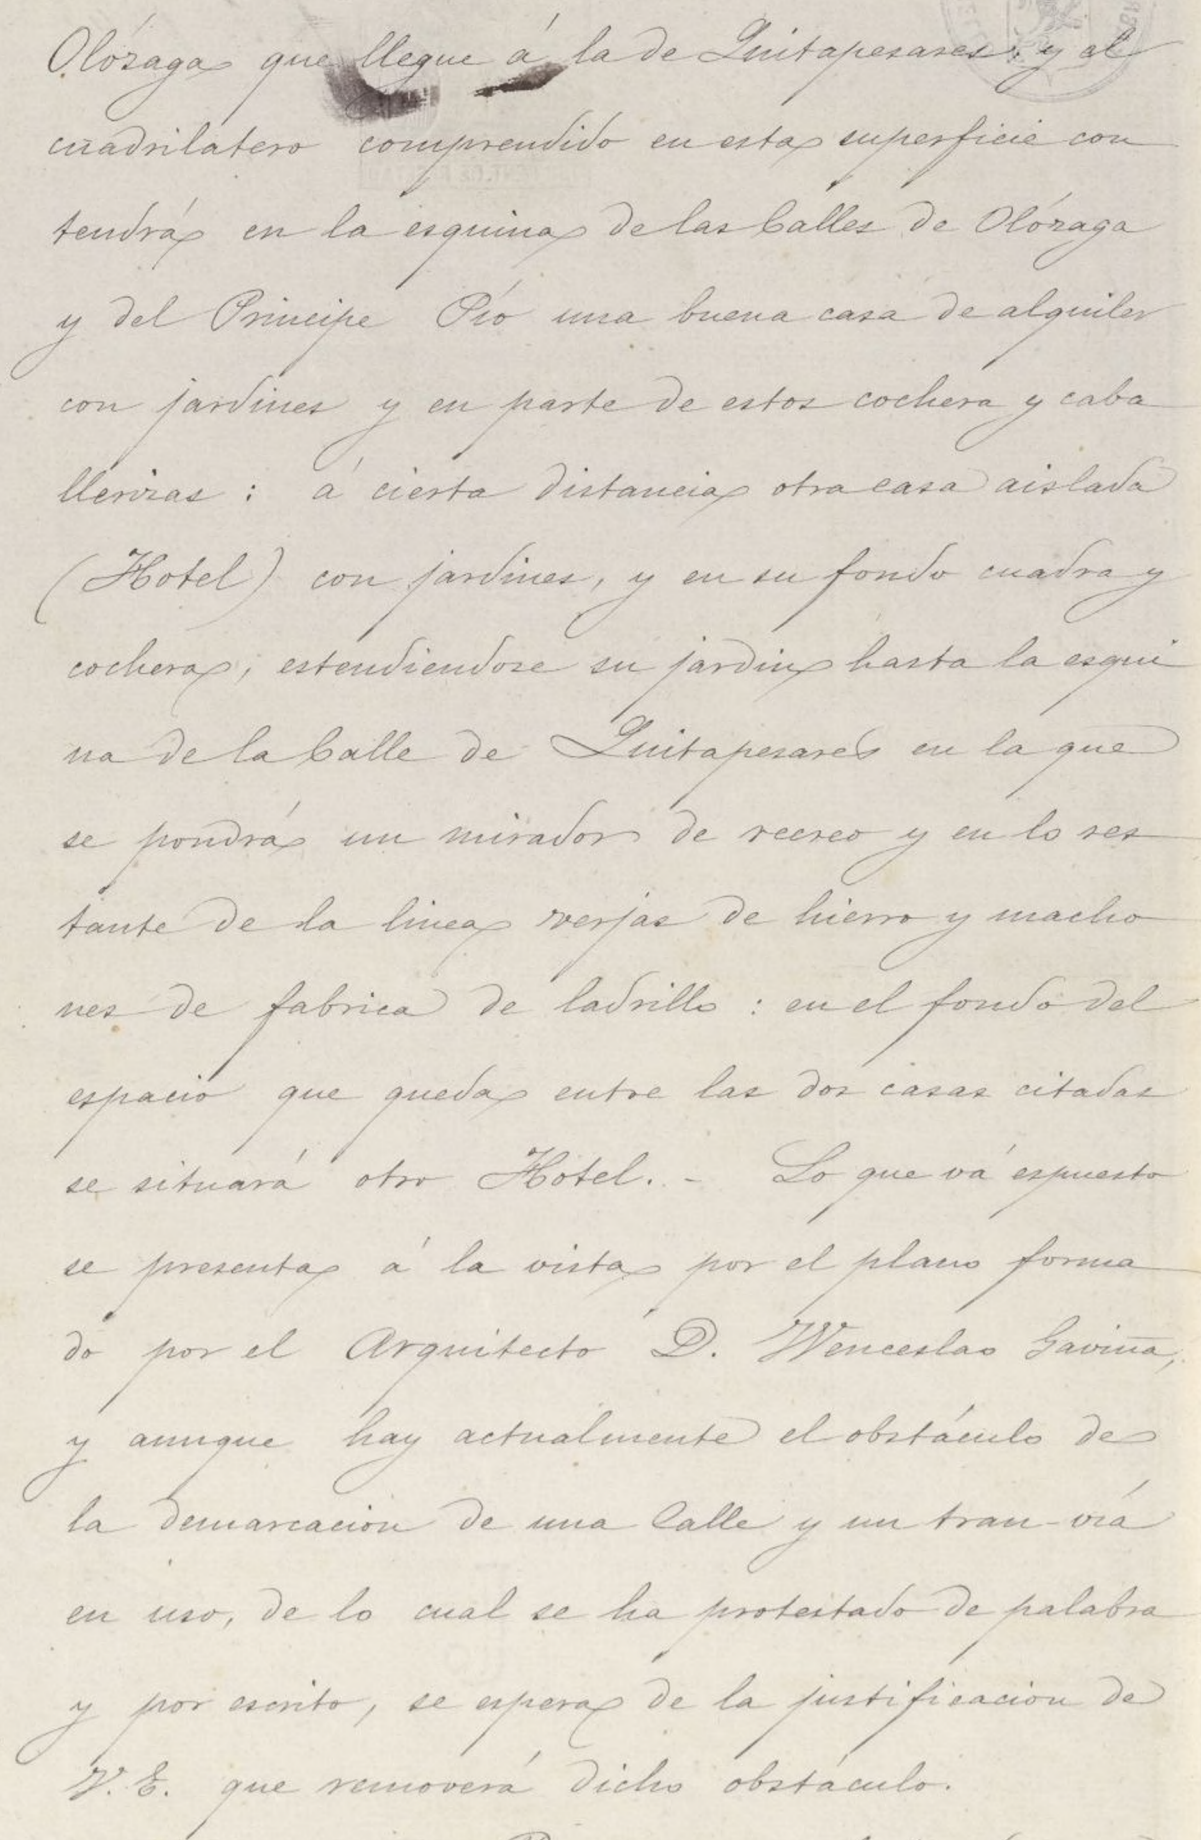 Olózaga que llegue á la de Quitapesares; y al
cuadrilatero comprendido en esta superficie con
tendrá en la esquina de las Calles de Olózaga
y del Principe Pío una buena casa de alquiler
con jardines y en parte de estos cochera y caba
llerizas : á cierta distancia otra casa aislada
(Hotel) con jardines, y en su fondo cuadra y
cochera, estendiendose su jardin hasta la esqui
na de la Calle de Quitapesares en la que
se pondrá un mirador de recreo y en lo res
tante de la linea verjas de hierro y macho
nes de fabrica de ladrillo : en el fondo del
espacio que queda entre las dos casas citadas
se situará otro Hotel. - Lo que vá espuesto
se presenta á la vista por el plano forma
do por el Arquitecto D. Wenceslao Gaviña,
y aunque hay actualmente el obstáculo de
la demarcacion de una Calle y un tran-vía
en uso, de lo cual se ha protestado de palabra
y por escrito, se espera de la justificacion de
V. E. que removerá dicho obstáculo.